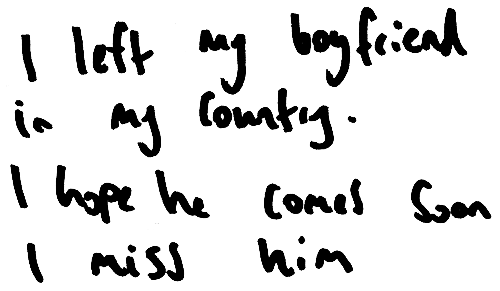 I left my boyfriend
in my country.
I hope he comes soon
I miss him